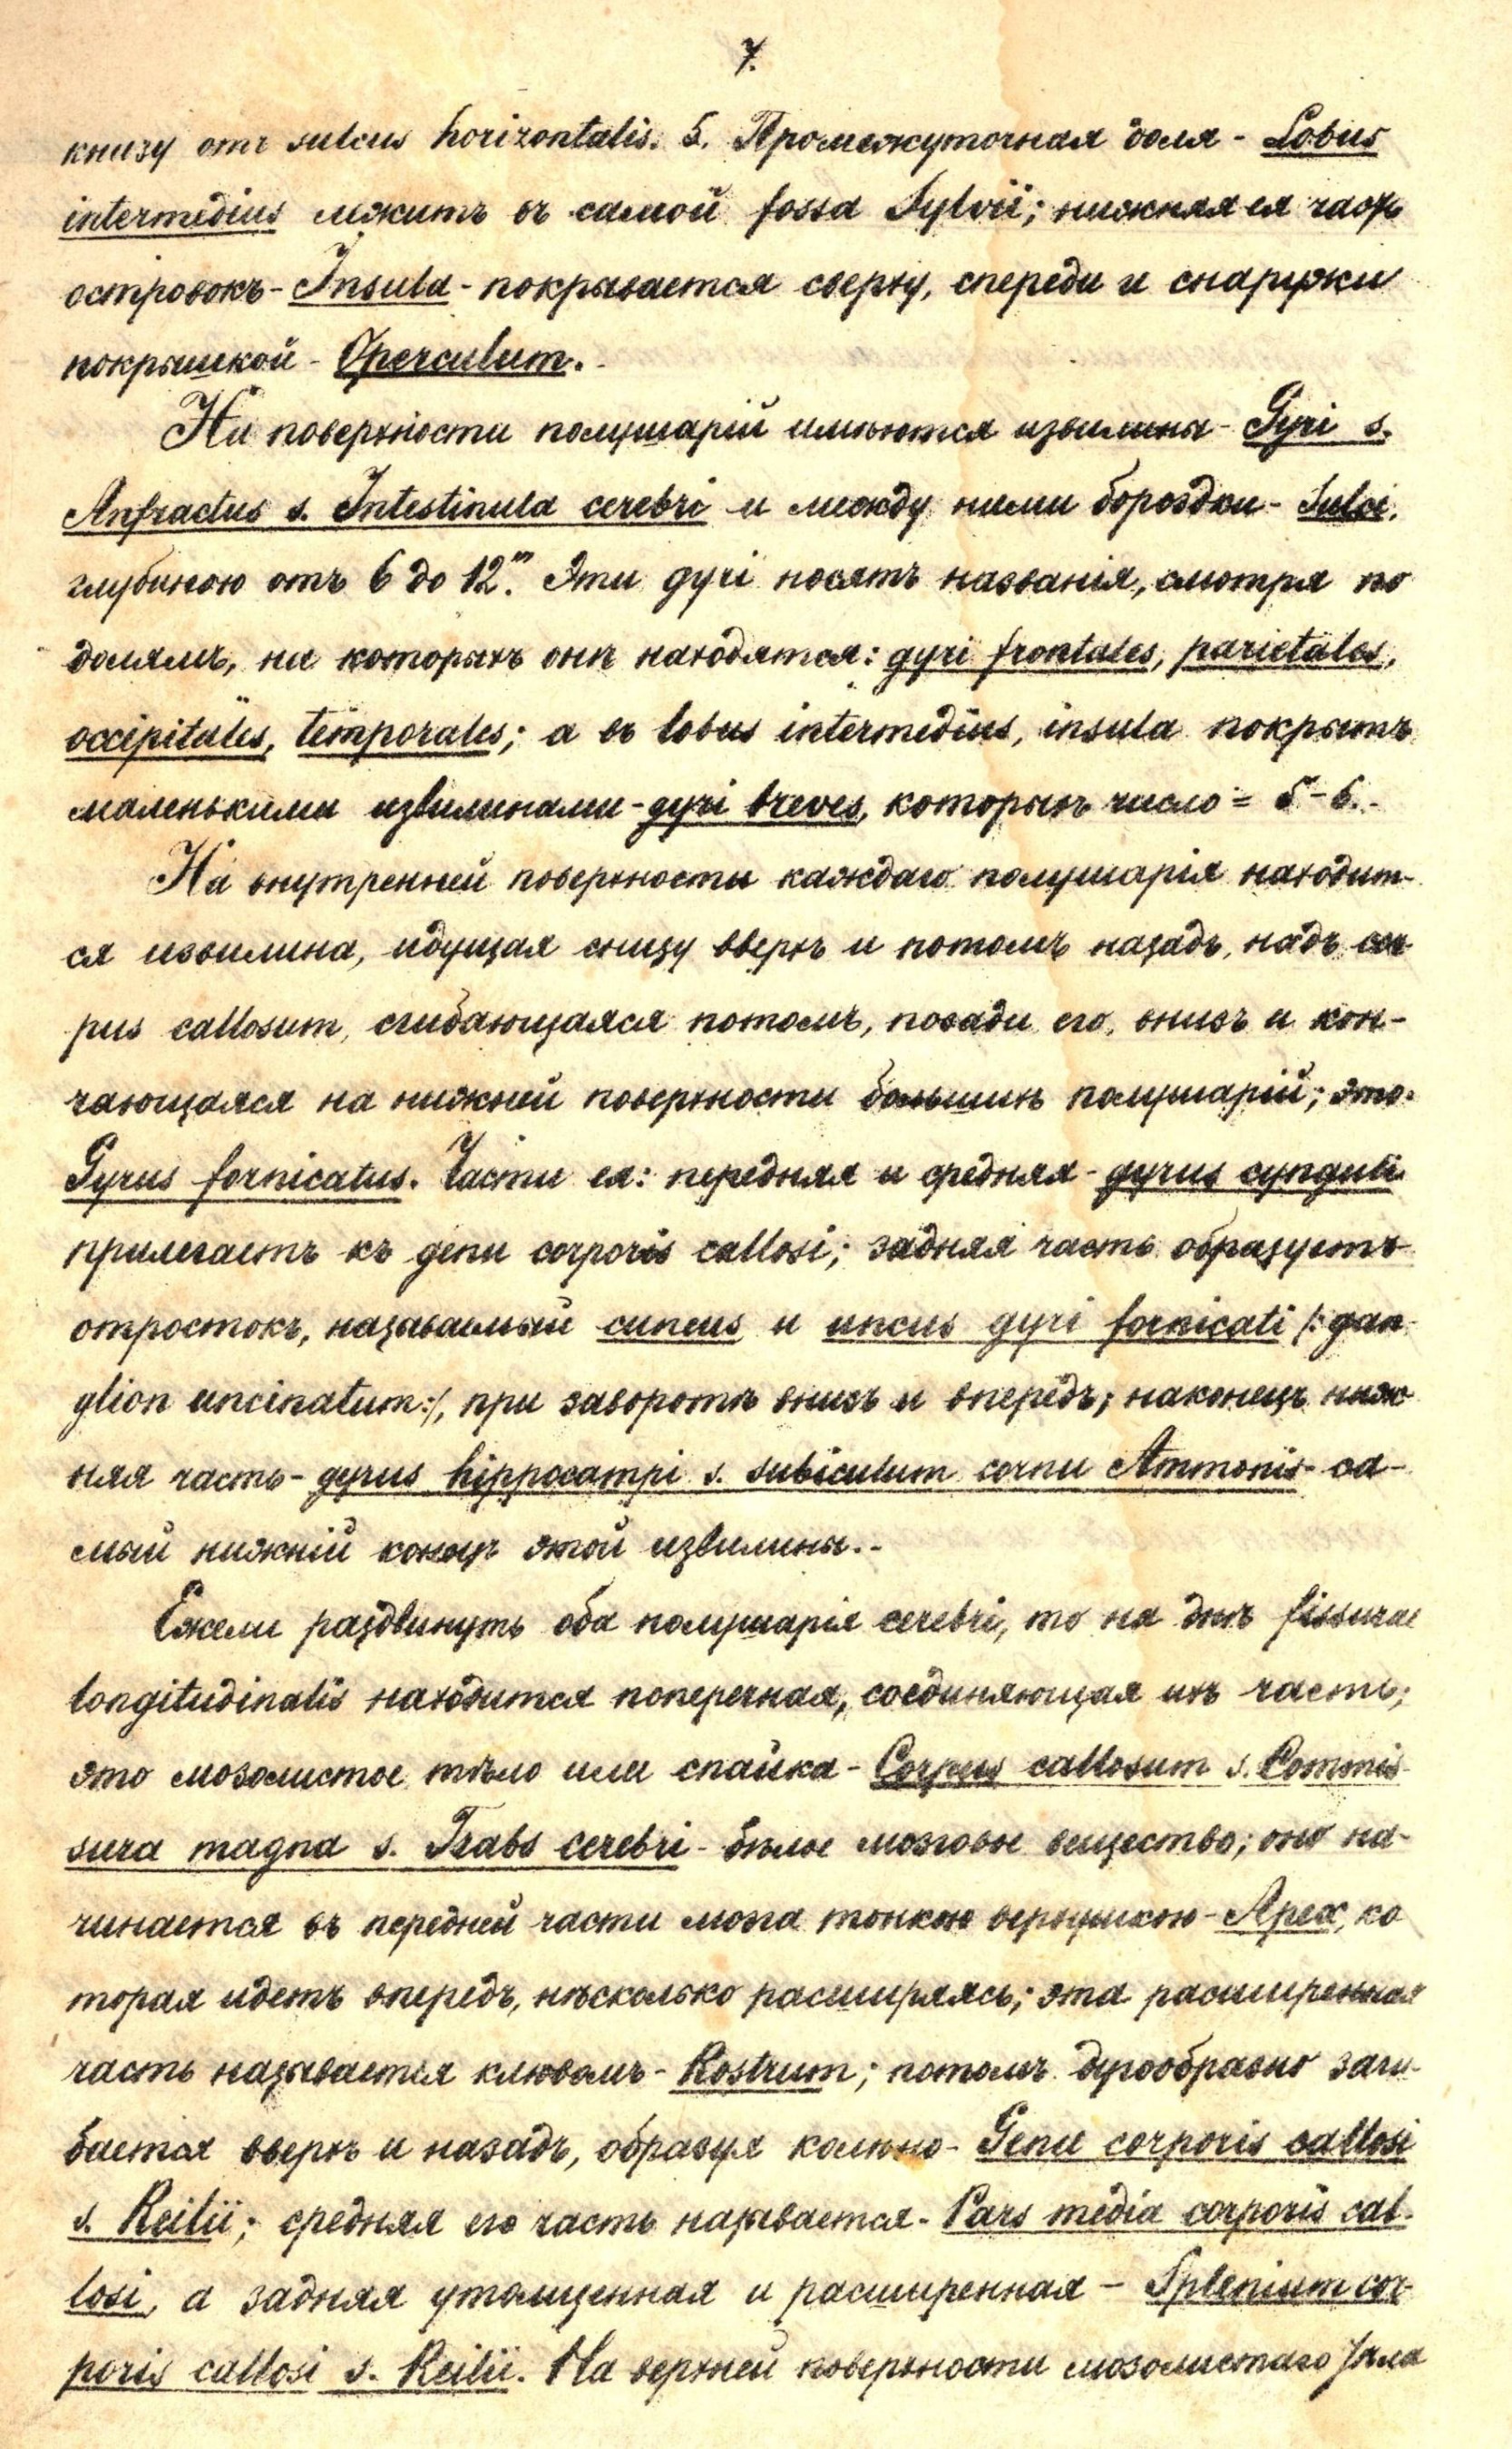 7.
книзу отъ sulcus horizontalis. 5. Промежуточная доля - Lobus
intermedius лежитъ въ самой fossa Sylvii; нижняя ея часть
островокъ - Insula - покрывается сверху, спереди и снаружи
покрышкой - Operculum. -
На поверхности полушарій имѣются извилины - Gyri s.
Anfractus s. Intestinula cerebri и между ними бороздки - Sulci,
глубиною отъ 6 до 12‴. Эти gyri носятъ названія, смотря по
долямъ, на которыхъ онѣ находятся: gyri frontales, parietales,
occipitales, temporales; а въ lobus intermedius, insula покрытъ
маленькими извилинами - gyri breves, которыхъ число = 5-6. -
На внутренней поверхности каждаго полушарія находит-
ся извилина, идущая снизу вверхъ и потомъ назадъ, надъ cor
pus callosum, сгибающаяся потомъ, позади его, внизъ и кон-
чающаяся на нижней поверхности большихъ полушарій; это-
Gyrus fornicatus. Части ея: передняя и средняя - gyrus cynguli
прилегаетъ къ genu corporis callosi; задняя часть образуетъ
отростокъ, называемый cuneus и uncus gyri fornicati /: gan
glion uncinatum:/, при заворотѣ внизъ и впередъ; наконецъ ниж
няя часть - gyrus hippocampi s. subiculum cornu Ammonis - са-
мый нижній конецъ этой извилины. -
Ежели раздвинуть оба полушарія cerebri, то на днѣ fissurae
longitudinalis находится поперечная, соединяющая ихъ часть;
это мозолистое тѣло или спайка - Corpus callosum s. Commis
sura magna s. Trabs cerebri - бѣлое мозговое вещество; оно на-
чинается въ передней части мозга тонкою верхушкою - Apex, ко
торая идетъ впередъ, нѣсколько расширяясь; эта расширенная
часть называется клювомъ - Rostrum; потомъ дугообразно заги-
бается вверхъ и назадъ, образуя колѣно - Genu corporis callosi
s. Reilii; средняя его часть называется - Pars media corporis cal-
losi, а задняя утолщенная и расширенная - Splenium cor-
poris callosi s. Reilii. На верхней поверхности мозолистаго тѣла